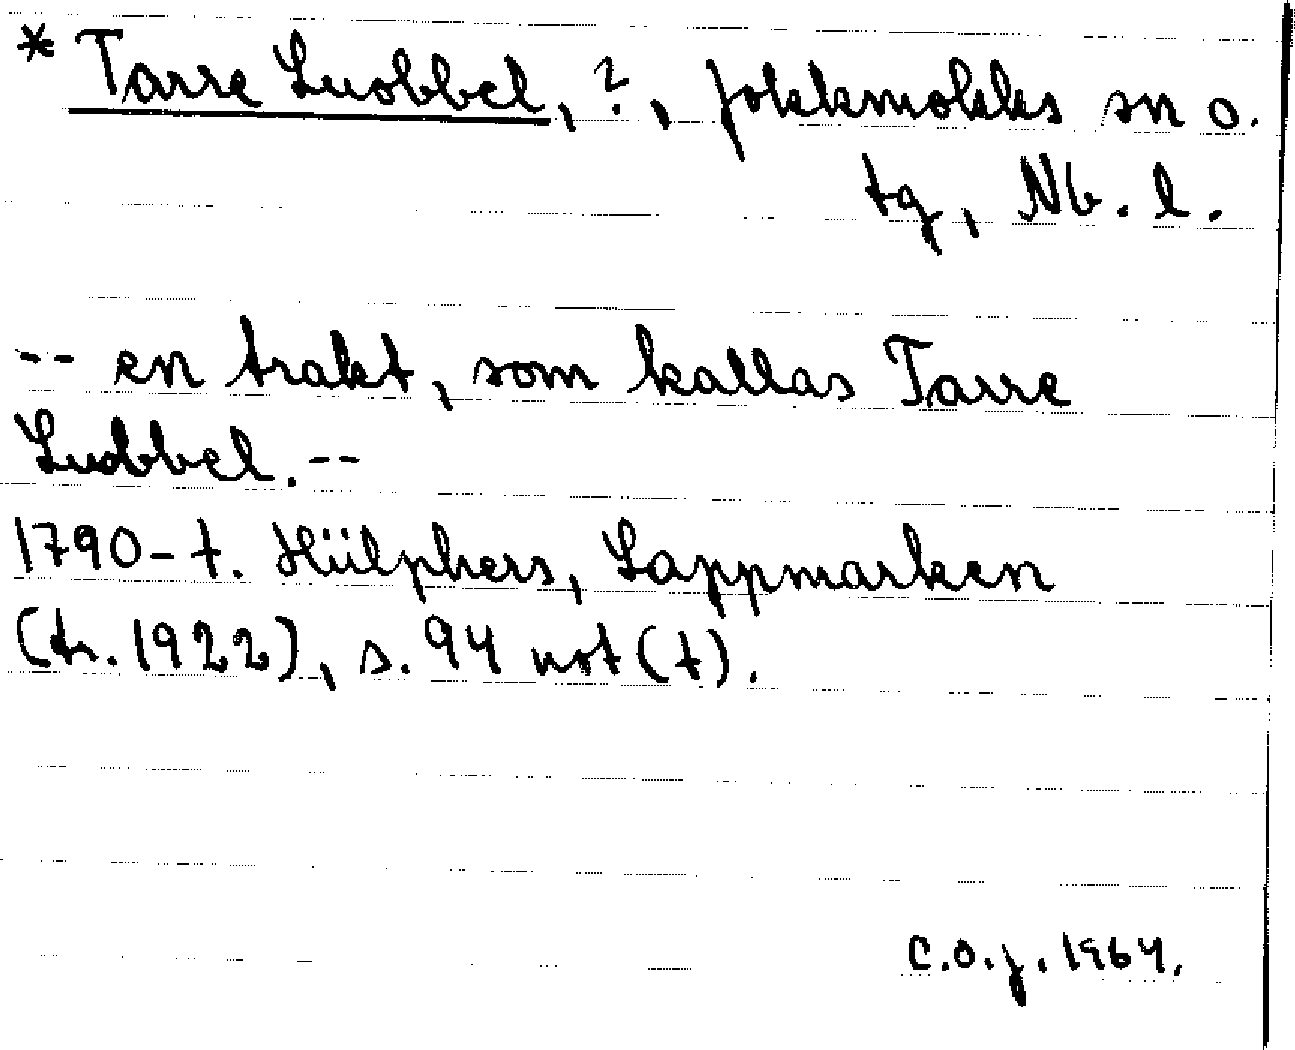 * Tarre Luobbel, ?, Jokkmokks sn o.
tg, Nb. l.
-- en trakt, som kallas Tarre
Luobbel. --
1790-t. Hülphers, Lappmarken
(tr. 1922), s. 94 not (t).
C.O.J. 1964.